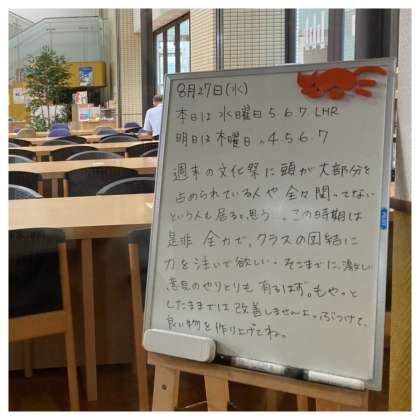 8月27日(水)
本日は水曜日5.6.7 LHR
明日は木曜日〃4.5.6.7
週末の文化祭に頭が大部分を
占められている人や全々関ってない
という人も居ると思う…。この時期は
是非全力で、クラスの団結に
力を注いで欲しい。そこまでに、激しい
意見のやりとりも有るはず。もやっと
したままでは改善しませんよ。ぶつけて、
良い物を作り上げてね。